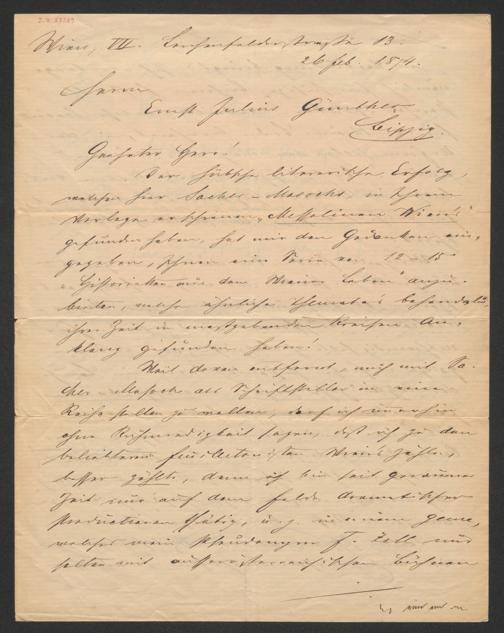 Wien, VII. Lerchenfelderstrasse 13.
26 Feb. 1874.
Herrn
Ernst Julius Günther
Leipzig.
Geehrter Herr!
Der hübsche literarische Erfolg,
welchen Herr Sacher-Masochs, in Ihrem
Verlage erschienene „Messalinen Wiens"
gefunden haben, hat mir den Gedanken ein-
gegeben, Ihnen eine Serie von 12-15
„Historietten aus dem Wiener Leben" anzu-
bieten, welche ähnliche Themata's behandeln,
ihrer Zeit in massgebenden Kreisen An-
klang gefunden haben!
Weit davon entfernt, mich mit Sa-
cher-Masoch als Schriftsteller in eine
Reihe stellen zu wollen, darf ich immerhin
ohne Ruhmredigkeit sagen, daß ich zu den
beliebteren Feuilletonisten Wiens zähle,
besser zählte, denn ich bin seit geraumer
Zeit nur auf dem Felde dramatischer
Production thätig, u. z. in einem Genre,
welches mein Pseudonym F. Zell nur
selten mit ausserösterreichischen Bühnen